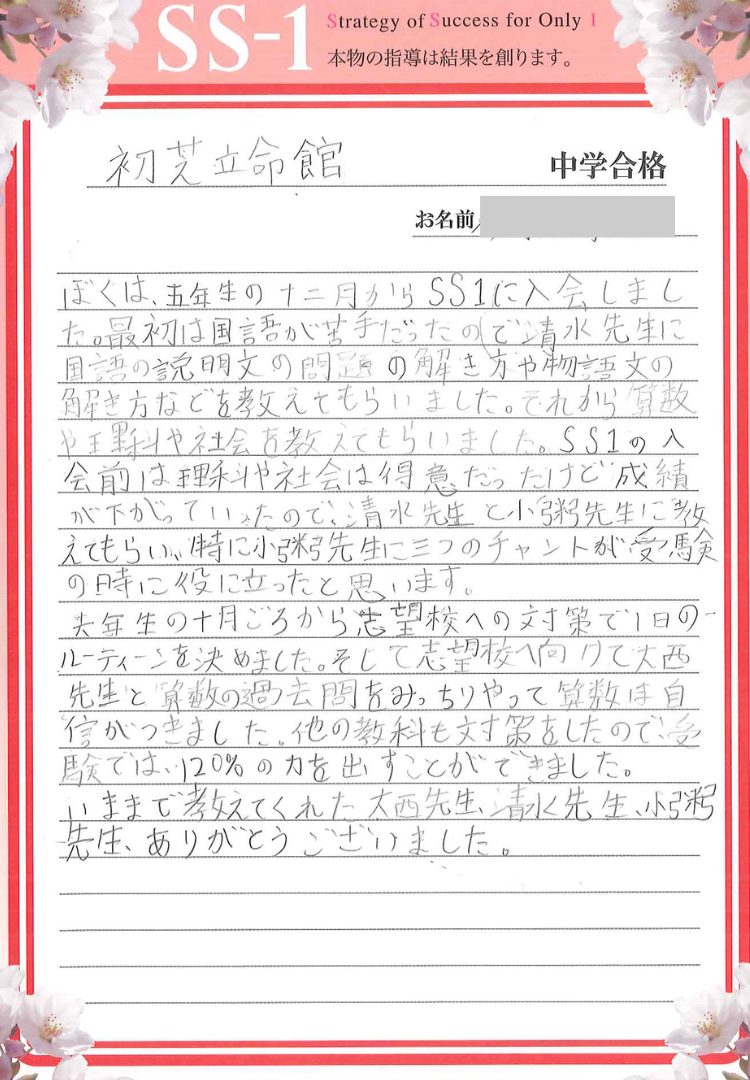 SS-1
Strategy of Success for Only 1
本物の指導は結果を創ります。
初芝立命館
中学合格
お名前
ぼくは、五年生の十二月からSS1に入会しまし
た。最初は国語が苦手だったので清水先生に
国語の説明文の問題の解き方や物語文の
解き方などを教えてもらいました。それから算数
や理科や社会を教えてもらいました。SS1の入
会前は理科や社会は得意だったけど成績
が下がっていったので、清水先生と小粥先生に教
えてもらい、特に小粥先生に三つのチャントが受験
の時に役に立ったと思います。
六年生の十月ごろから志望校への対策で1日の
ルーティーンを決めました。そして志望校へ向けて大西
先生と算数の過去問をみっちりやって算数は自
信がつきました。他の教科も対策をしたので、受
験では、120%の力を出すことができました。
いままで教えてくれた大西先生、清水先生、小粥
先生、ありがとうございました。